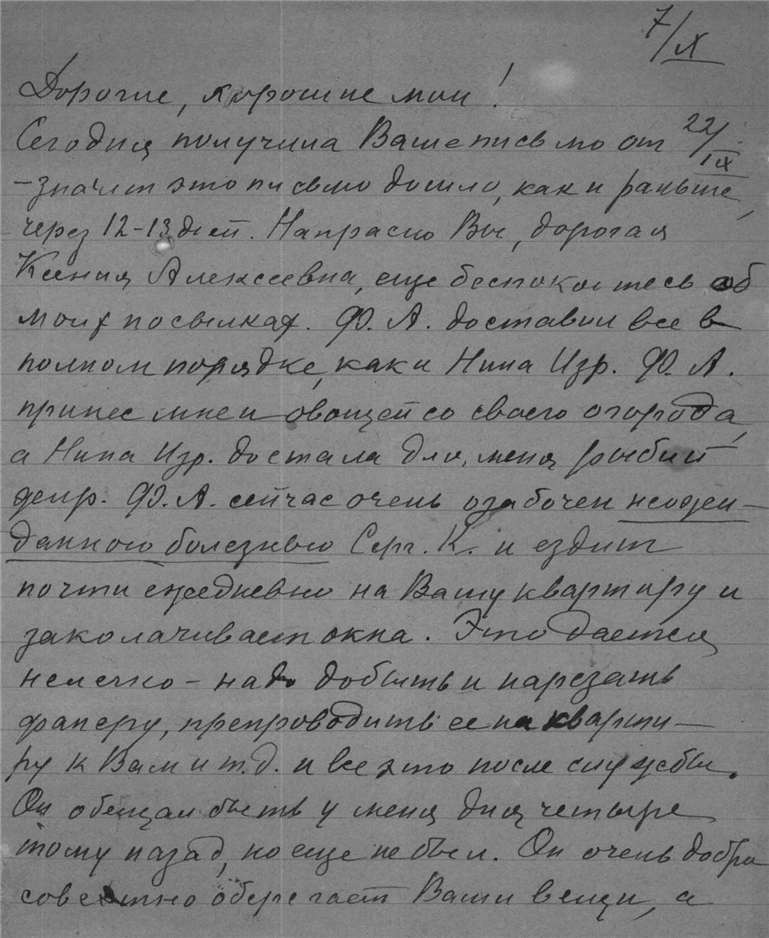 7/X
Дорогие, хорошие мои!
Сегодня получила Ваше письмо от 22/IX
– значит это письмо дошло, как и раньше,
через 12-13 дней. Напрасно Вы, дорогая
Ксения Алексеевна, еще беспокоитесь об
моих посылках. Ф. А. доставил все в
полном порядке, как и Нина Изр. Ф. А.
принес мне и овощей со своего огорода,
а Нина Изр. достала для меня рыбий
жир. Ф. А. сейчас очень озабочен неожи-
данною болезнью Серг. К. и ездит
почти ежедневно на Вашу квартиру и
заколачивает окна. Это дается
нелегко – надо добыть и нарезать
фанеру, препроводить ее на кварти-
ру к Вам и т.д. и все это после службы.
Он обещал быть у меня дня четыре
тому назад, но еще не был. Он очень добро
совестно оберегает Ваши вещи, а